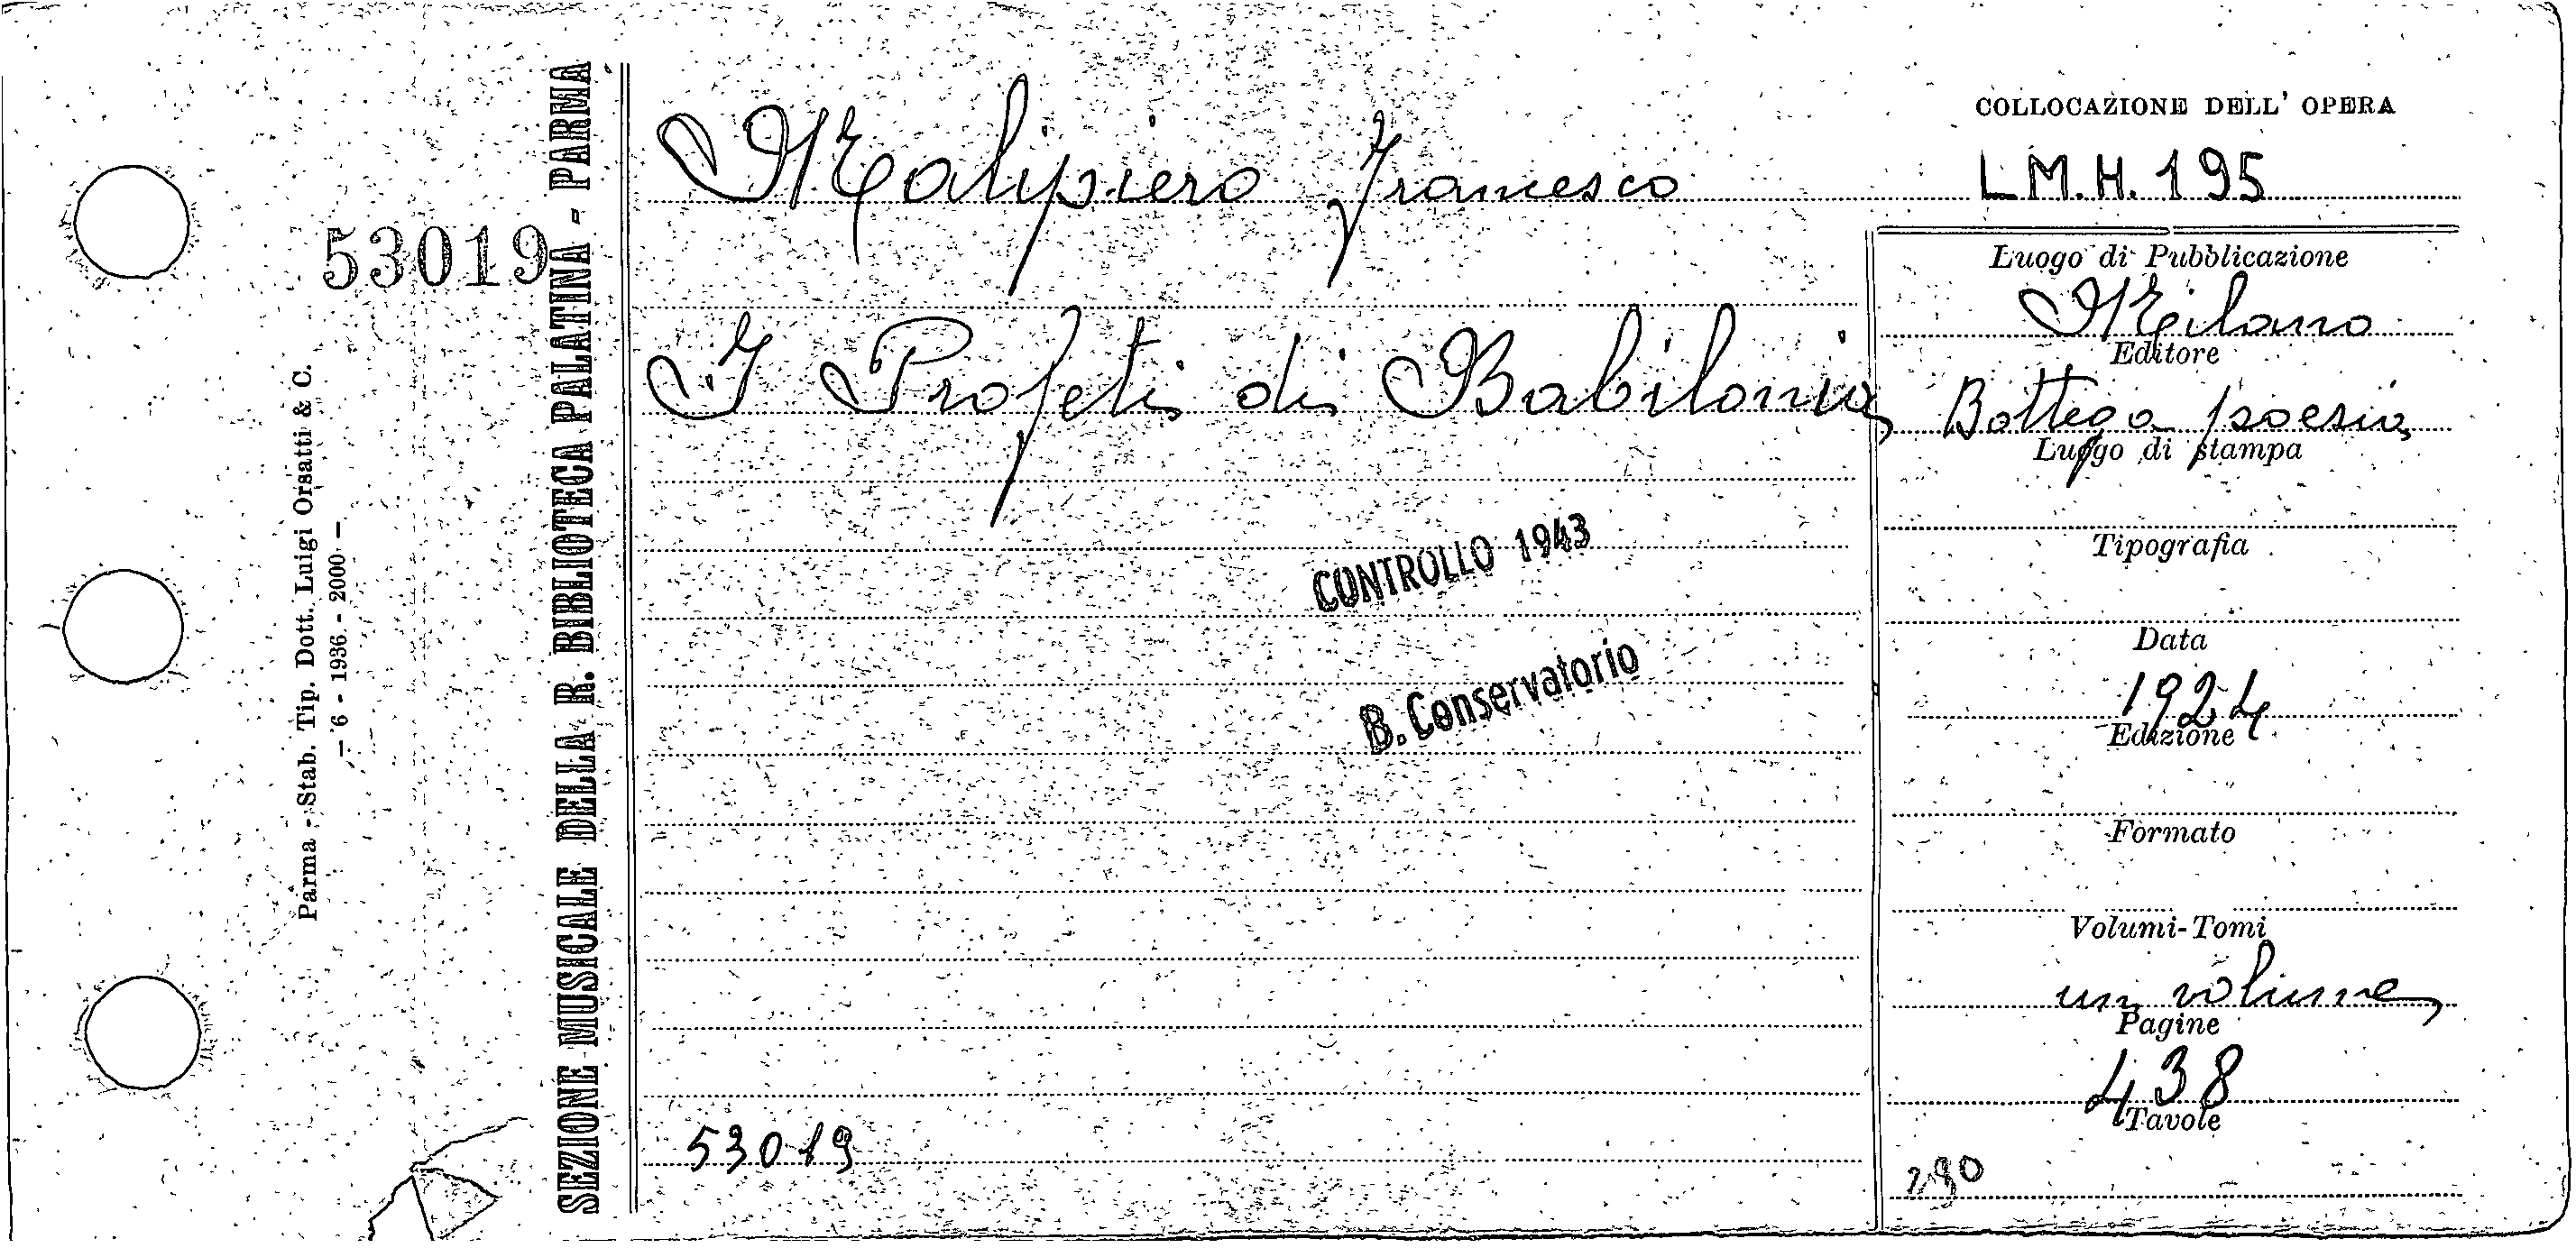 53019
Parma - Stab. Tip. Dott. Luigi Orsatti & C.
— 6 - 1936 - 2000 —
SEZIONE MUSICALE DELLA R. BIBLIOTECA PALATINA - PARMA
Malipiero Francesco
I Profeti di Babilonia
CONTROLLO 1943
B. Conservatorio
53019
COLLOCAZIONE DELL' OPERA
L.M.H. 195
Luogo di Pubblicazione
Milano
Editore
Bottega poesia
Luogo di stampa
Tipografia
Data
1924
Edizione
Formato
Volumi-Tomi
un volume
Pagine
438
Tavole